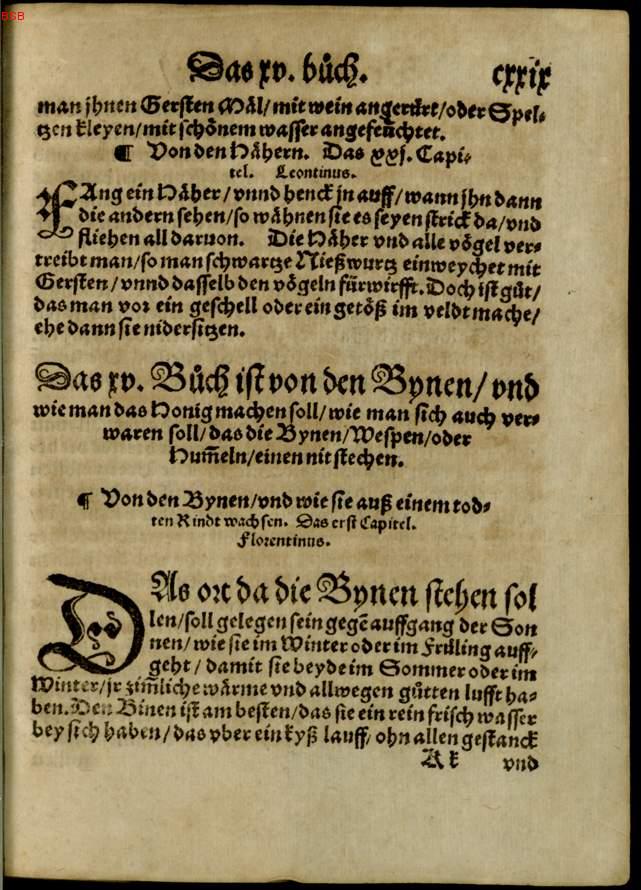 BSB
Das xv. bůch. cxxix
man jhnen Gersten Mål/ mit wein angerůrt/ oder Spel-
tzen kleyen/ mit schönem wasser angefeuͤchtet.
¶ Von den Håhern. Das xxj. Capi-
tel. Leontinus.
FAng ein Håher/ vnnd henck jn auff/ wann jhn dann
die andern sehen/ so wåhnen sie es seyen strick da/ vnd
fliehen all daruon. Die Håher vnd alle vögel ver-
treibt man/ so man schwartze Nießwurtz einweychet mit
Gersten/ vnnd dasselb den vögeln fürwirfft. Doch ist gůt/
das man vor ein geschell oder ein getöß im veldt mache/
ehe dann sie nidersitzen.
Das xv. Bůch ist von den Bynen/ vnd
wie man das Honig machen soll/ wie man sich auch ver-
waren soll/ das die Bynen/ Wespen/ oder
Hum̃eln/ einen nit stechen.
¶ Von den Bynen/ vnd wie sie auß einem tod-
ten Rindt wachsen. Das erst Capitel.
Florentinus.
DAs ort da die Bynen stehen sol
len/ soll gelegen sein gegẽ auffgang der Son
nen/ wie sie im Winter oder im Früling auff-
geht/ damit sie beyde im Sommer oder im
Winter/ jr zim̃liche wårme vnd allwegen gůtten lufft ha-
ben. Den Binen ist am besten/ das sie ein rein frisch wasser
bey sich haben/ das vber ein kyß lauff/ ohn allen gestanck
Kk vnd